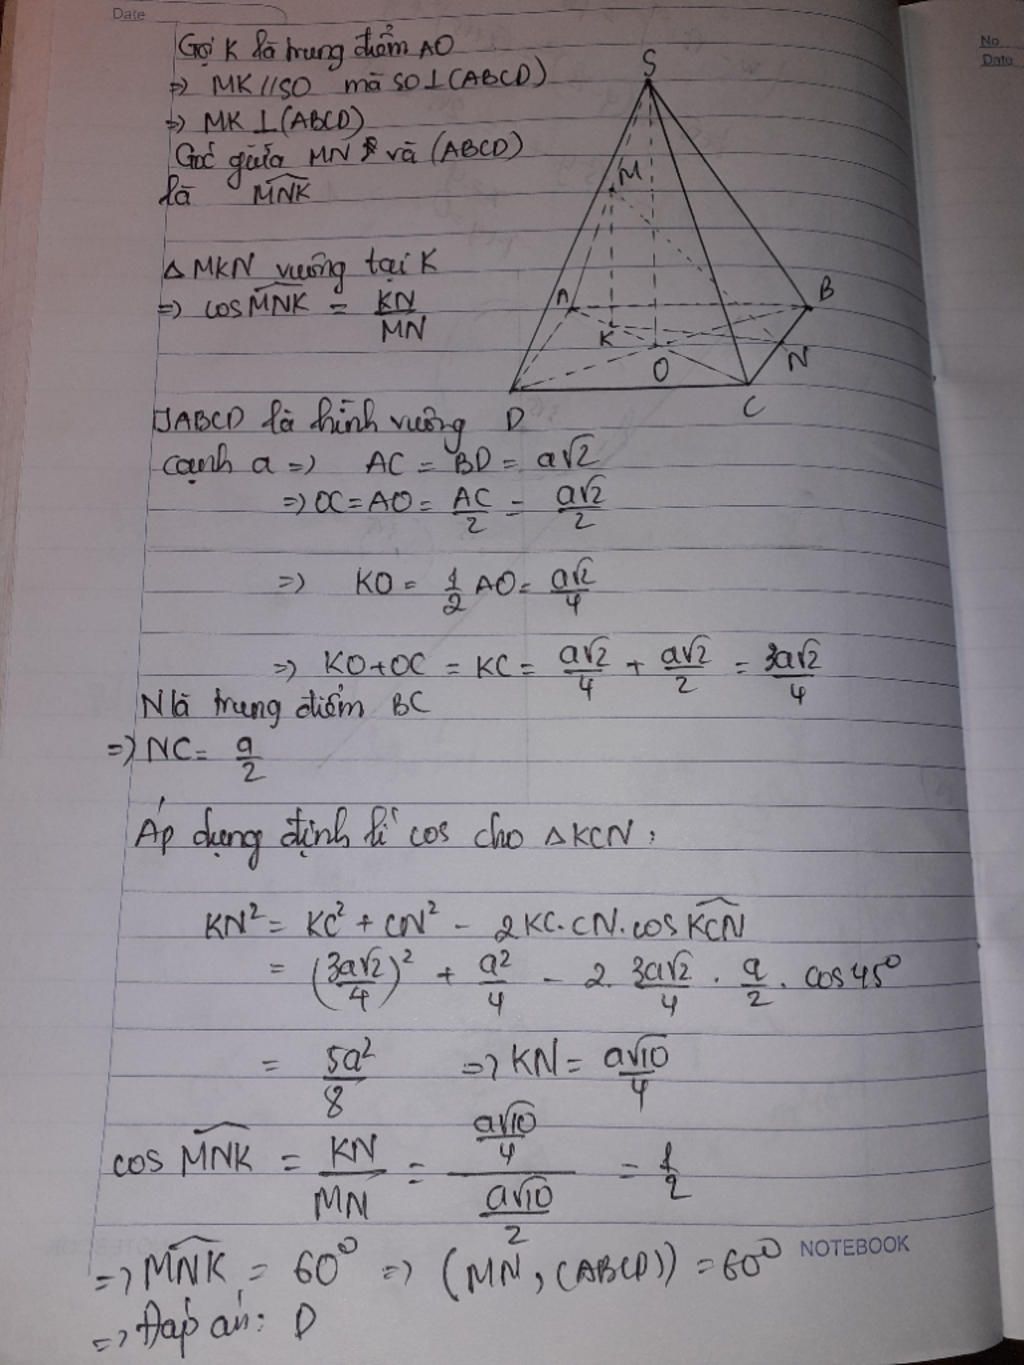 Date
No
Date
Gọi K là trung điểm AO
=> MK//SO mà SO⊥(ABCD)
=> MK⊥(ABCD)
Góc giữa MN và (ABCD)
là \widehat{MNK}
S
M
A
B
K
O
N
D
C
Δ MKN vuông tại K
=> cos\widehat{MNK} = \frac{KN}{MN}
ABCD là hình vuông
cạnh a => AC = BD = a√2
=> OC = AO = \frac{AC}{2} = \frac{a√2}{2}
=> KO = \frac{1}{2} AO = \frac{a√2}{4}
=> KO+OC = KC = \frac{a√2}{4} + \frac{a√2}{2} = \frac{3a√2}{4}
N là trung điểm BC
=> NC = \frac{a}{2}
Áp dụng định lí cos cho ΔKCN:
KN² = KC² + CN² - 2KC.CN.cos\widehat{KCN}
= (\frac{3a√2}{4})² + \frac{a²}{4} - 2. \frac{3a√2}{4} . \frac{a}{2} . cos45°
= \frac{5a²}{8} => KN = \frac{a√10}{4}
cos \widehat{MNK} = \frac{KN}{MN} = \frac{\frac{a√10}{4}}{\frac{a√10}{2}} = \frac{1}{2}
=> \widehat{MNK} = 60° => (MN, (ABCD)) = 60°
=> Đáp án: D
NOTEBOOK